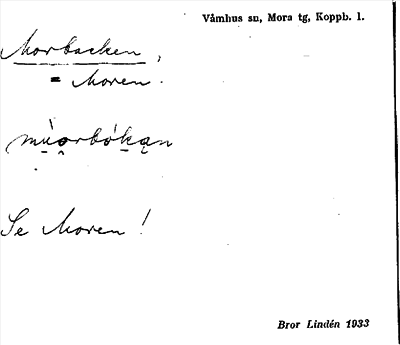 Våmhus sn, Mora tg, Koppb. l.
Morbacken,
= Moren.
mùo̯rbók̠ąn
Se Moren!
Bror Lindén 1933